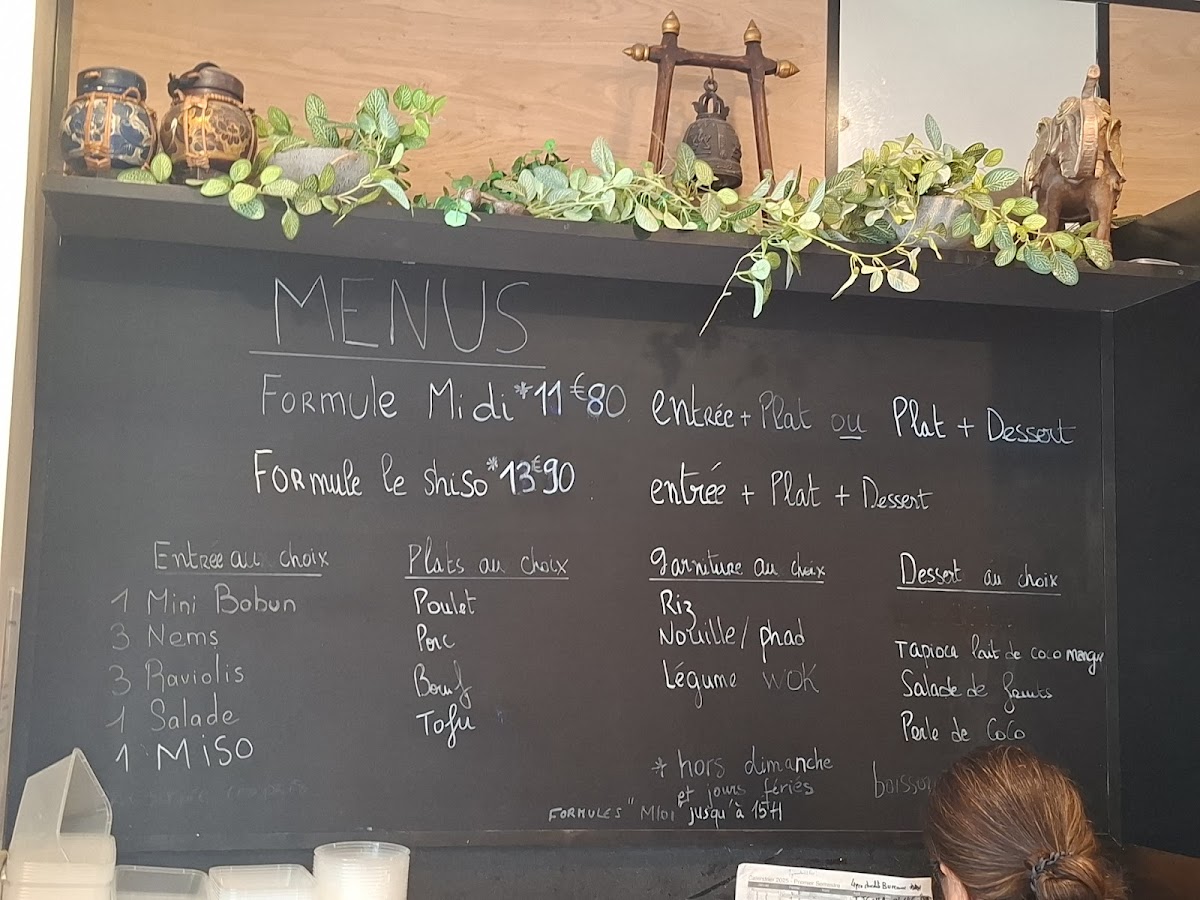 MENUS
Formule Midi *11€80 entrée + Plat ou Plat + Dessert
Formule le shiso *13€90 entrée + Plat + Dessert
Entrée au choix
1 Mini Bobun
3 Nems
3 Raviolis
1 Salade
1 Miso
Plats au choix
Poulet
Porc
Bœuf
Tofu
garniture au choix
Riz
Nouille/phad
Légume wok
Dessert au choix
Tapioca lait de coco mangue
Salade de fruits
Perle de coco
* hors dimanche
et jours fériés
FORMULES "Midi" jusqu'à 15H
boisson
Calendrier 2025 - Premier Semestre